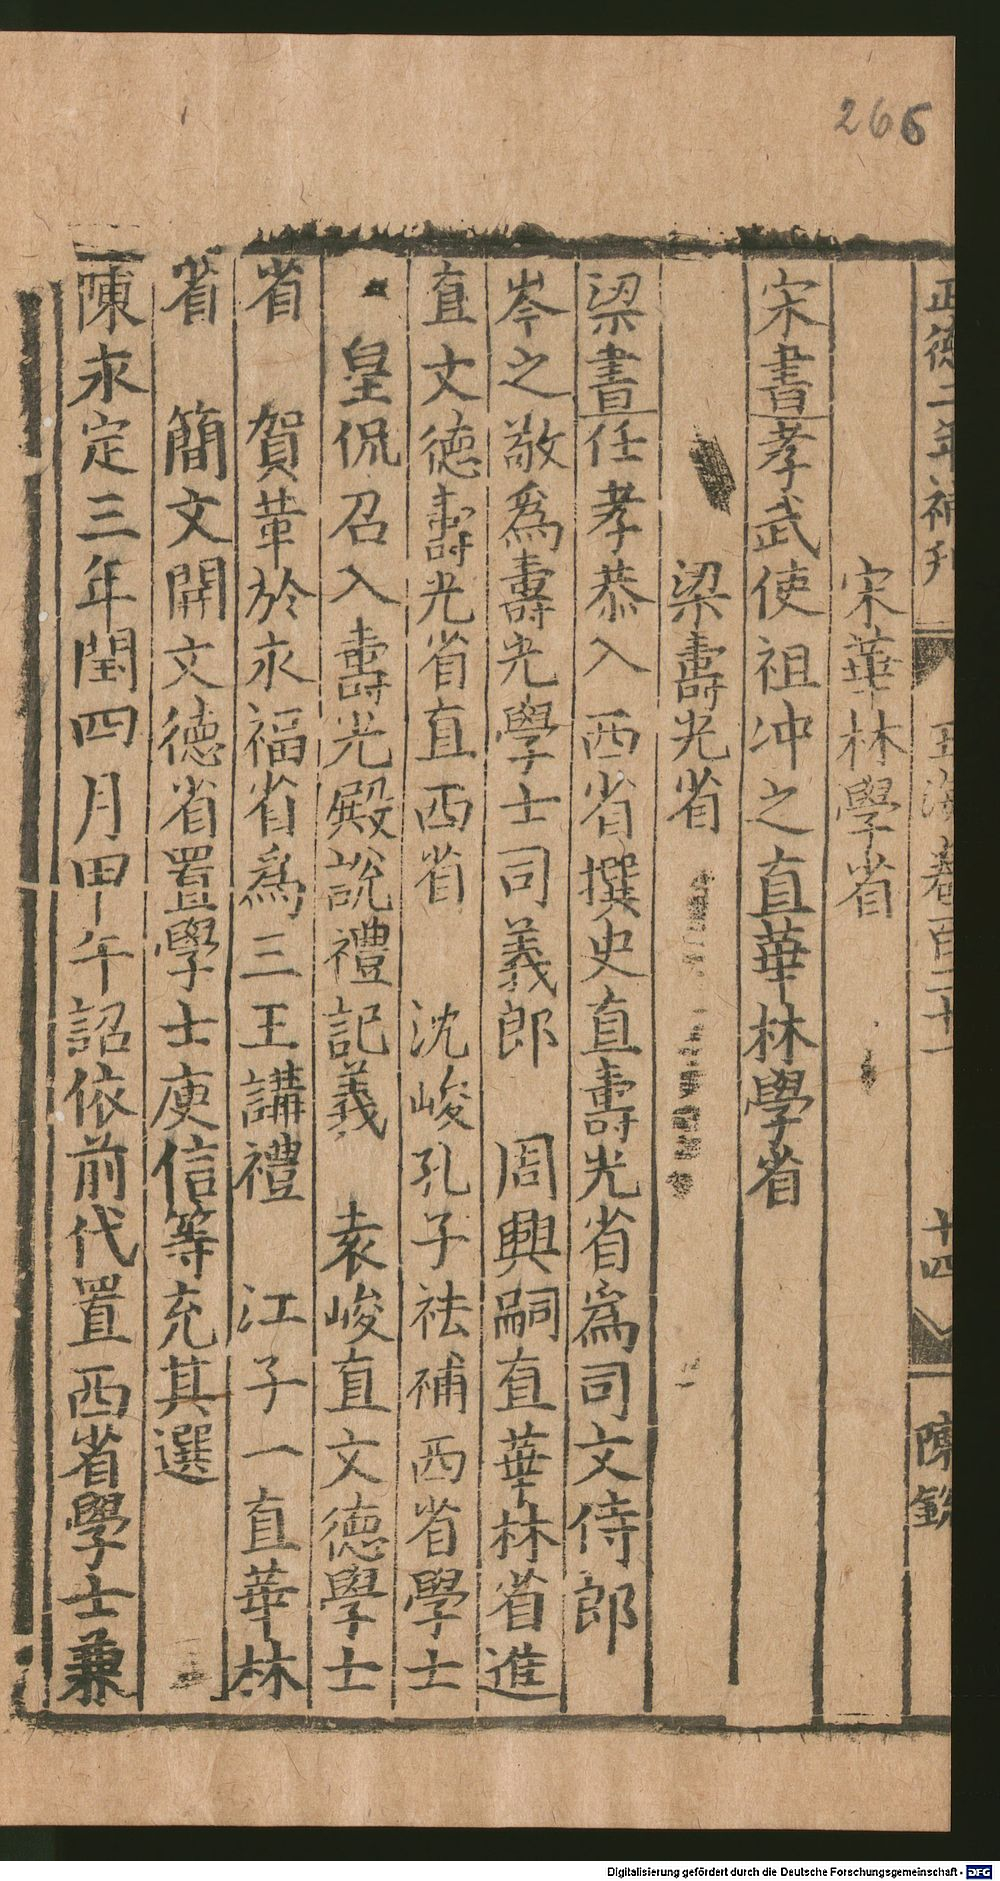 266
正德二年補刊 玉海卷百二十一 十四 陳欽
宋華林學省
宋書孝武使祖冲之直華林學省
梁壽光省
梁書任孝恭入西省撰史直壽光省爲司文侍郎
岑之敬爲壽光學士司義郎 周興嗣直華林省進
直文德壽光省直西省 沈峻孔子袪補西省學士
皇侃召入壽光殿說禮記義 袁峻直文德學士
省 賀革於永福省爲三王講禮 江子一直華林
省 簡文開文德省置學士庾信等充其選
陳永定三年閏四月甲午詔依前代置西省學士兼
Digitalisierung gefördert durch die Deutsche Forschungsgemeinschaft - DFG